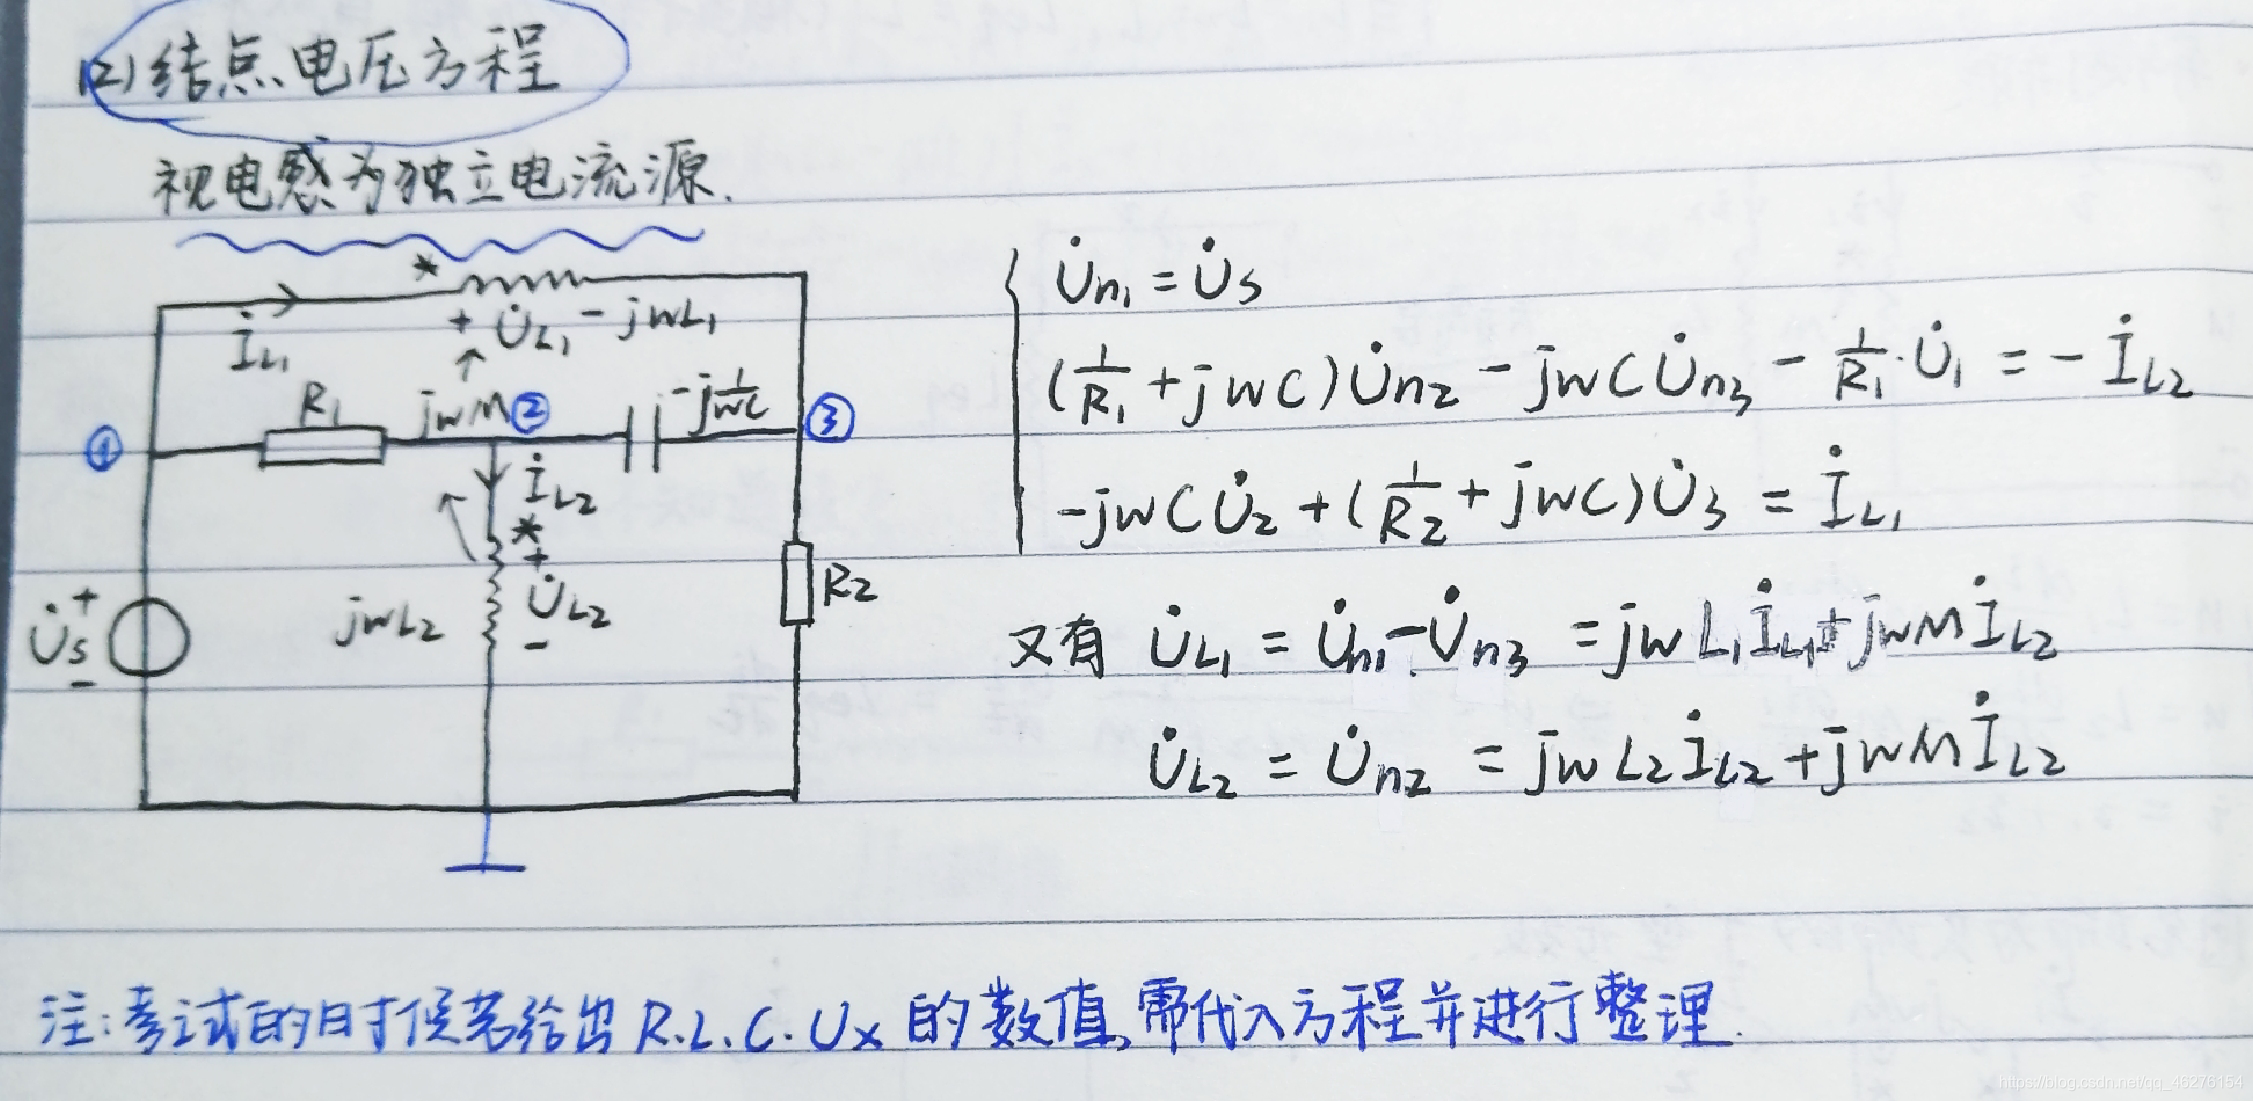 (2)结点电压方程
视电感为独立电流源.
*
İL1
+ U̇L1 - jwL1
R1
jwM
②
-j1/wC
①
③
İL2
*
+
U̇L2
-
jwL2
R2
+
U̇s
-
U̇n1 = U̇s
(1/R1 + jwC)U̇n2 - jwCU̇n3 - 1/R1·U̇1 = -İL2
-jwCU̇2 + (1/R2 + jwC)U̇3 = İL1
又有 U̇L1 = U̇n1 - U̇n3 = jwL1İL1 + jwMİL2
U̇L2 = U̇n2 = jwL2İL2 + jwMİL2
注:考试的时候若给出R.L.C.Ux的数值,需代入方程并进行整理.
https://blog.csdn.net/qq_46276154